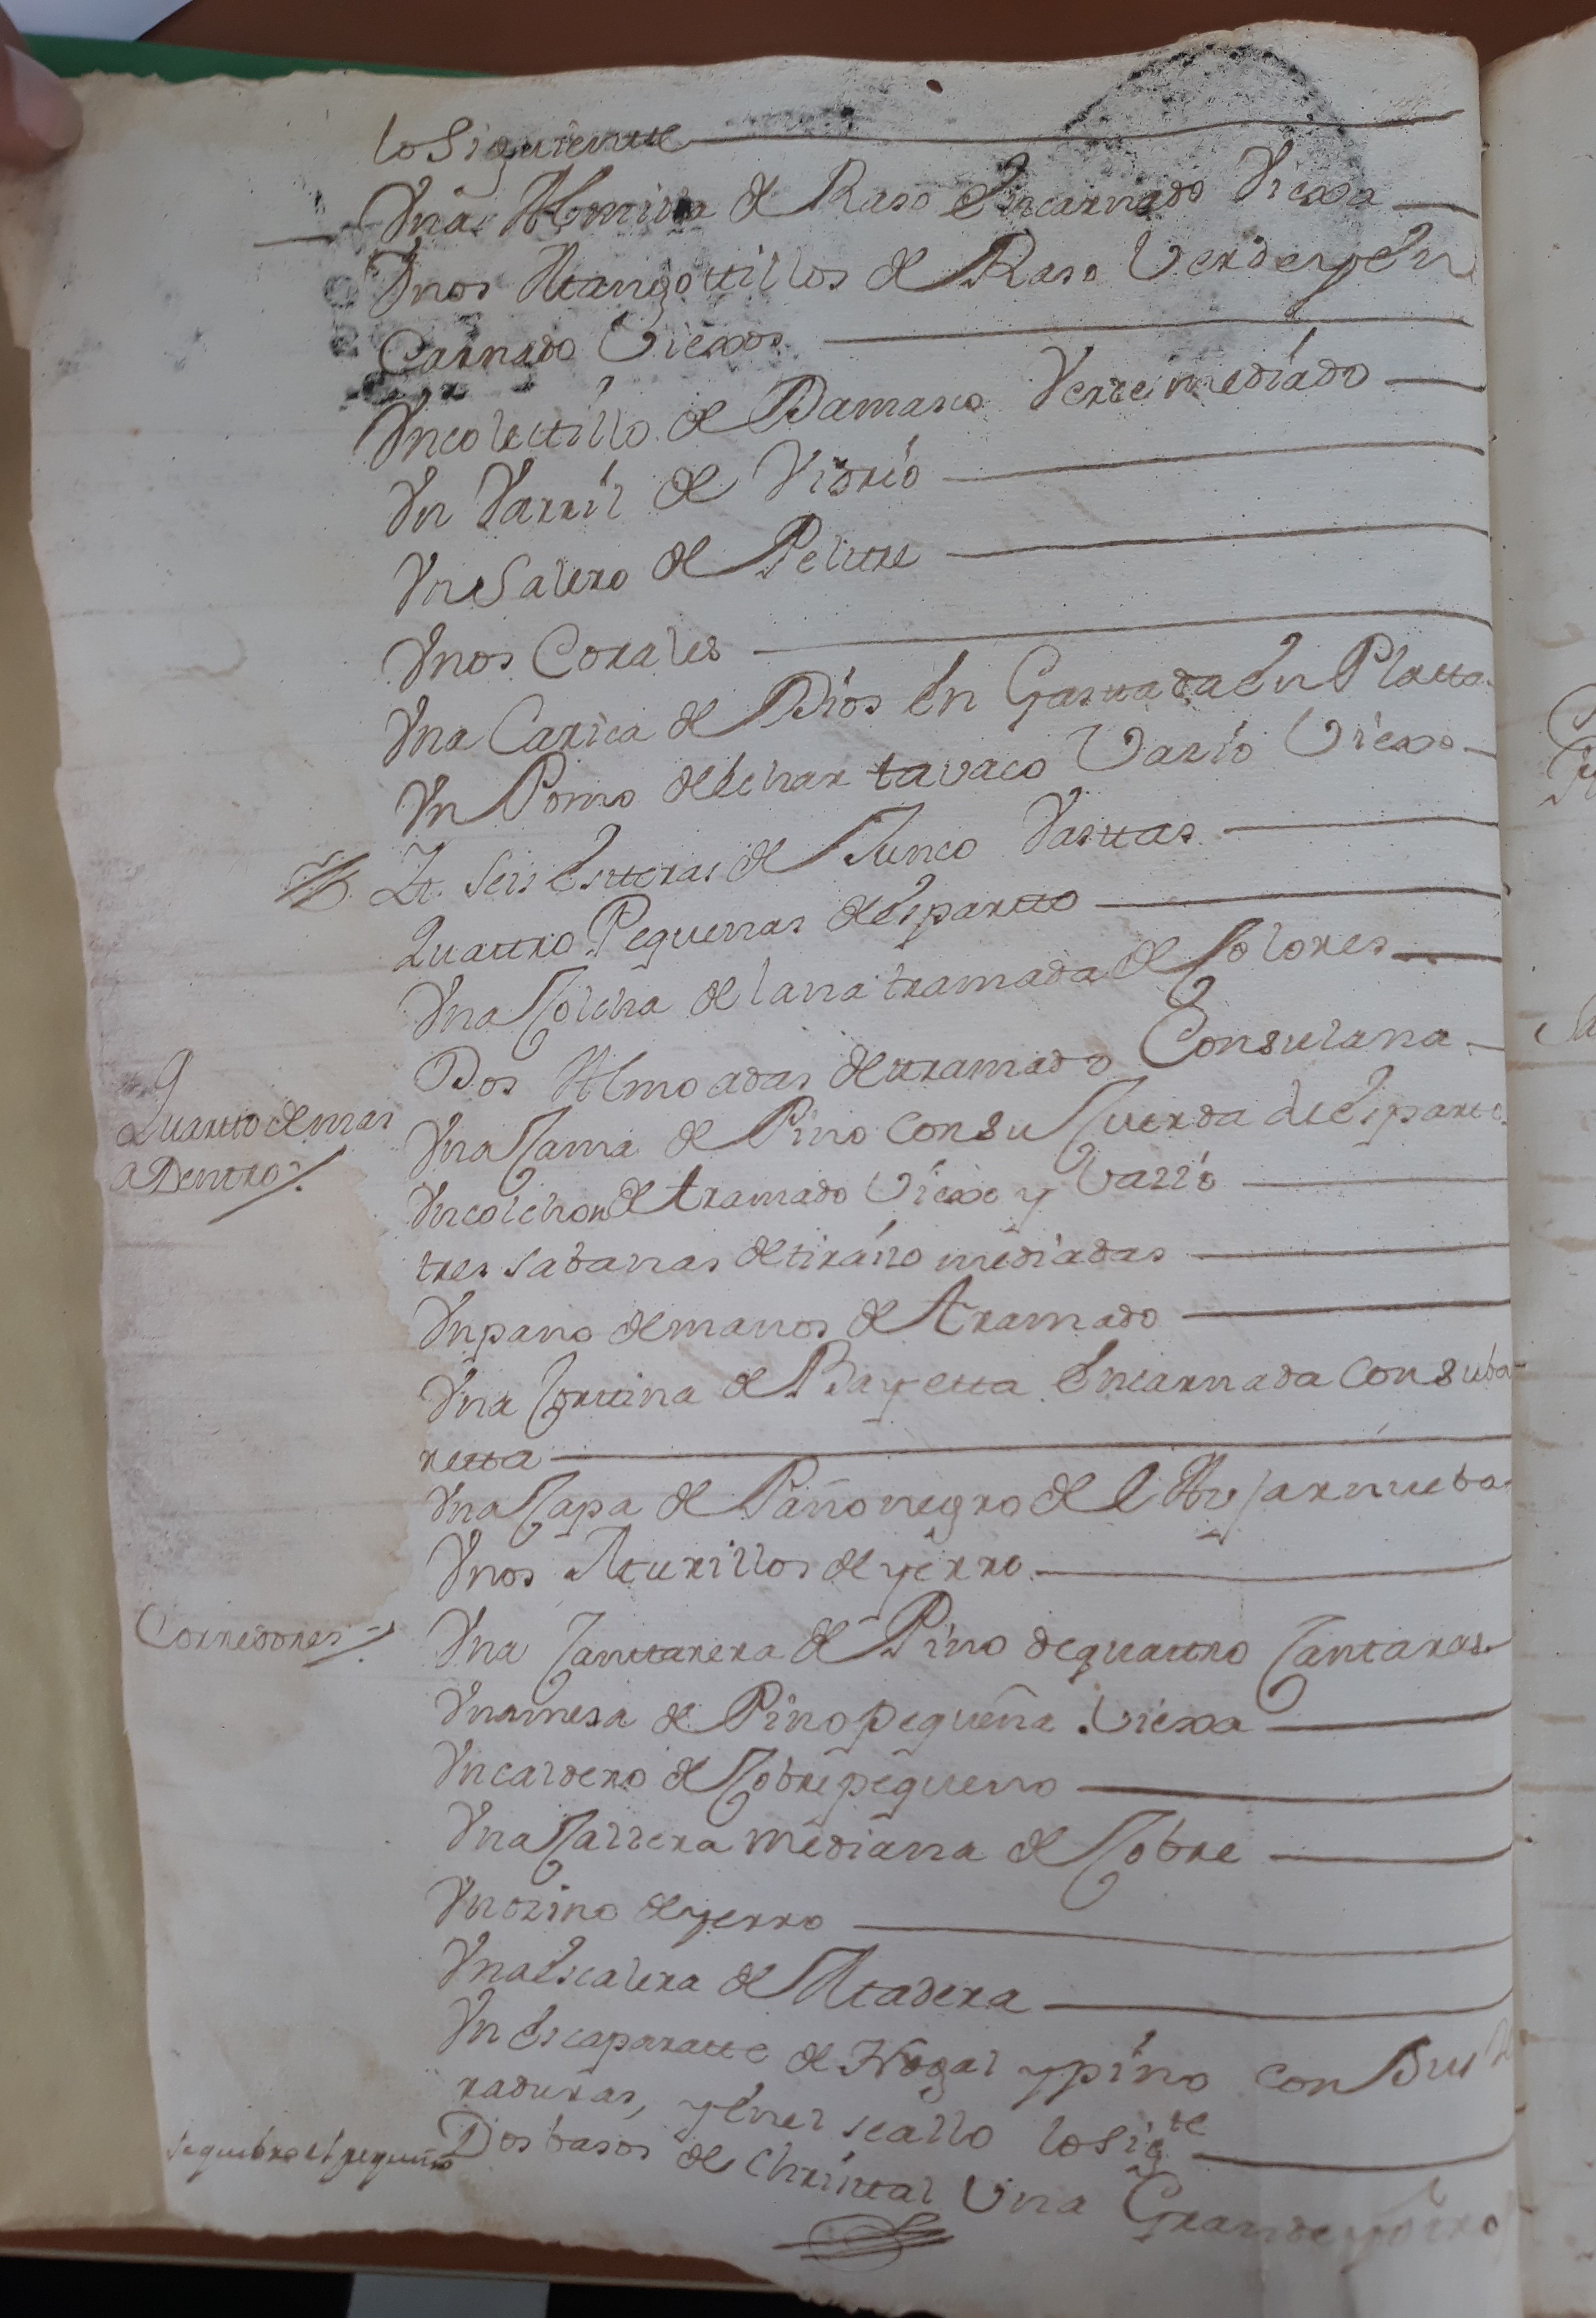 lo Siguiente
Una Almilla de Raso Encarnado Viexa
Unos Mangottillos de Raso Verde y En
Carnado Viexos
Un colettillo de Damasco Verde mediado
Un Varril de Vidrio
Un Salero de Peltre
Unos Corales
Una Carica de Dios En Gastada En Platta
Un Pomo de Echar tavaco Vacio Viexo
Yt. Seis Esteras de Junco Vastas
Quattro Pequenas de Espartto
Una Colcha de lana tramada de Colores
Dos Almoadas de tramado Con su lana
Quartto de mas
a Dentro
Una Cama de Pino con su Cuerda de Esparto
Un colchon de tramado Viexo y Vacio
tres sabanas de tiraño mediadas
Un pano de manos de tramado
Una Corttina de Bayetta Encarnada con su ba
retta
Una Capa de Paño negro de el Alpujar nueba
Unos Murillos de yerro
Corredores
Una Canttarera de Pino de quattro Cantaras
Una mesa de Pino pequeña Viexa
Un caldero de Cobre pequeno
Una Caldera mediana de Cobre
Un ozino de yerro
Una Escalera de Madera
Un Escaparatte de Nogal y pino con Sus
raduras, y en el se allo lo Sigte
se quebro el pequeño
Dos basos de Christal Una Grande y otro